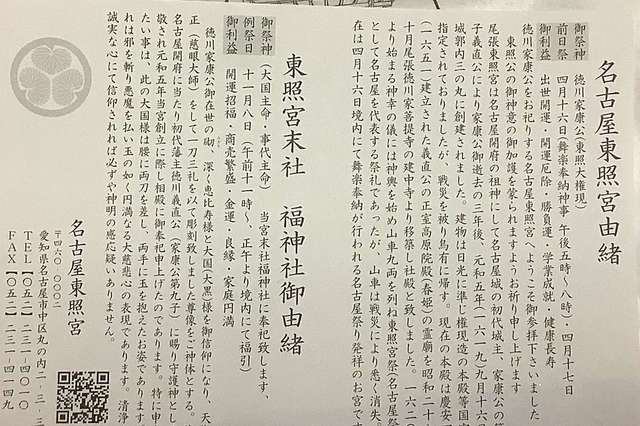 名古屋東照宮由緒
御祭神　徳川家康公（東照大権現）
前日祭　四月十六日（舞楽奉納神事　午後五時～八時）・四月十七日
御利益　出世開運・開運厄除・勝負運・学業成就・健康長寿
徳川家康公をお祀りする名古屋東照宮へようこそ御参拝下さいました
東照公の御神意の御加護を蒙られますようお祈り申し上げます
尾張東照宮は名古屋開府の祖神にして名古屋城の初代城主、家康公の第
子義直公により家康公御逝去の三年後、元和五年（一六一九）九月十六日
城郭内三の丸に創建されました。建物は日光に準じ権現造の本殿等国
指定されておりましたが、戦災を被り烏有に帰す。現在の本殿は慶安
（一六五一）建立された義直公の正室高原院殿（春姫）の霊廟を昭和二十
十月尾張徳川家菩提寺の建中寺より移築し社殿と致しました。一六二
より始まる神幸の儀には神輿を始め山車九両を列ね東照宮祭（名古屋祭
として名古屋を代表する祭礼であったが、山車は戦災により悉く消失
在は四月十六日境内にて舞楽奉納が行われる名古屋祭り発祥のお宮で
東照宮末社　福神社御由緒
御祭神　（大国主命・事代主命）　当宮末社福神社に奉祀致します、
例祭日　十一月八日（午前十一時～、正午より境内にて福引）
御利益　開運招福・商売繁盛・金運・良縁・家庭円満
徳川家康公御在世の砌　深く恵比寿様と大国（大黒）様を御信仰になり、天
正（慈眼大師）をして一刀三礼を以て彫刻致しました尊像をご神体とする。
名古屋開府に当たり初代藩主徳川義直公（家康公第九子）に賜り守護神とし
敬され元和五年当宮創立に際し相殿に御奉祀申上げたのであります。特に申
たい事は、此の大国様は腰に両刀を差し、両手に玉を抱えたお姿であります
れは邪を斬り悪魔を払い玉の如く円満なる大慈悲心の表現であります。清浄
誠実な心にて信仰されれば必ずや神明の感応疑いありません。
名古屋東照宮
〒四六〇-〇〇〇二
愛知県名古屋市中区丸の内二-三-
TEL【〇五二】二三一-四〇一〇
FAX【〇五二】二三一-四一四九